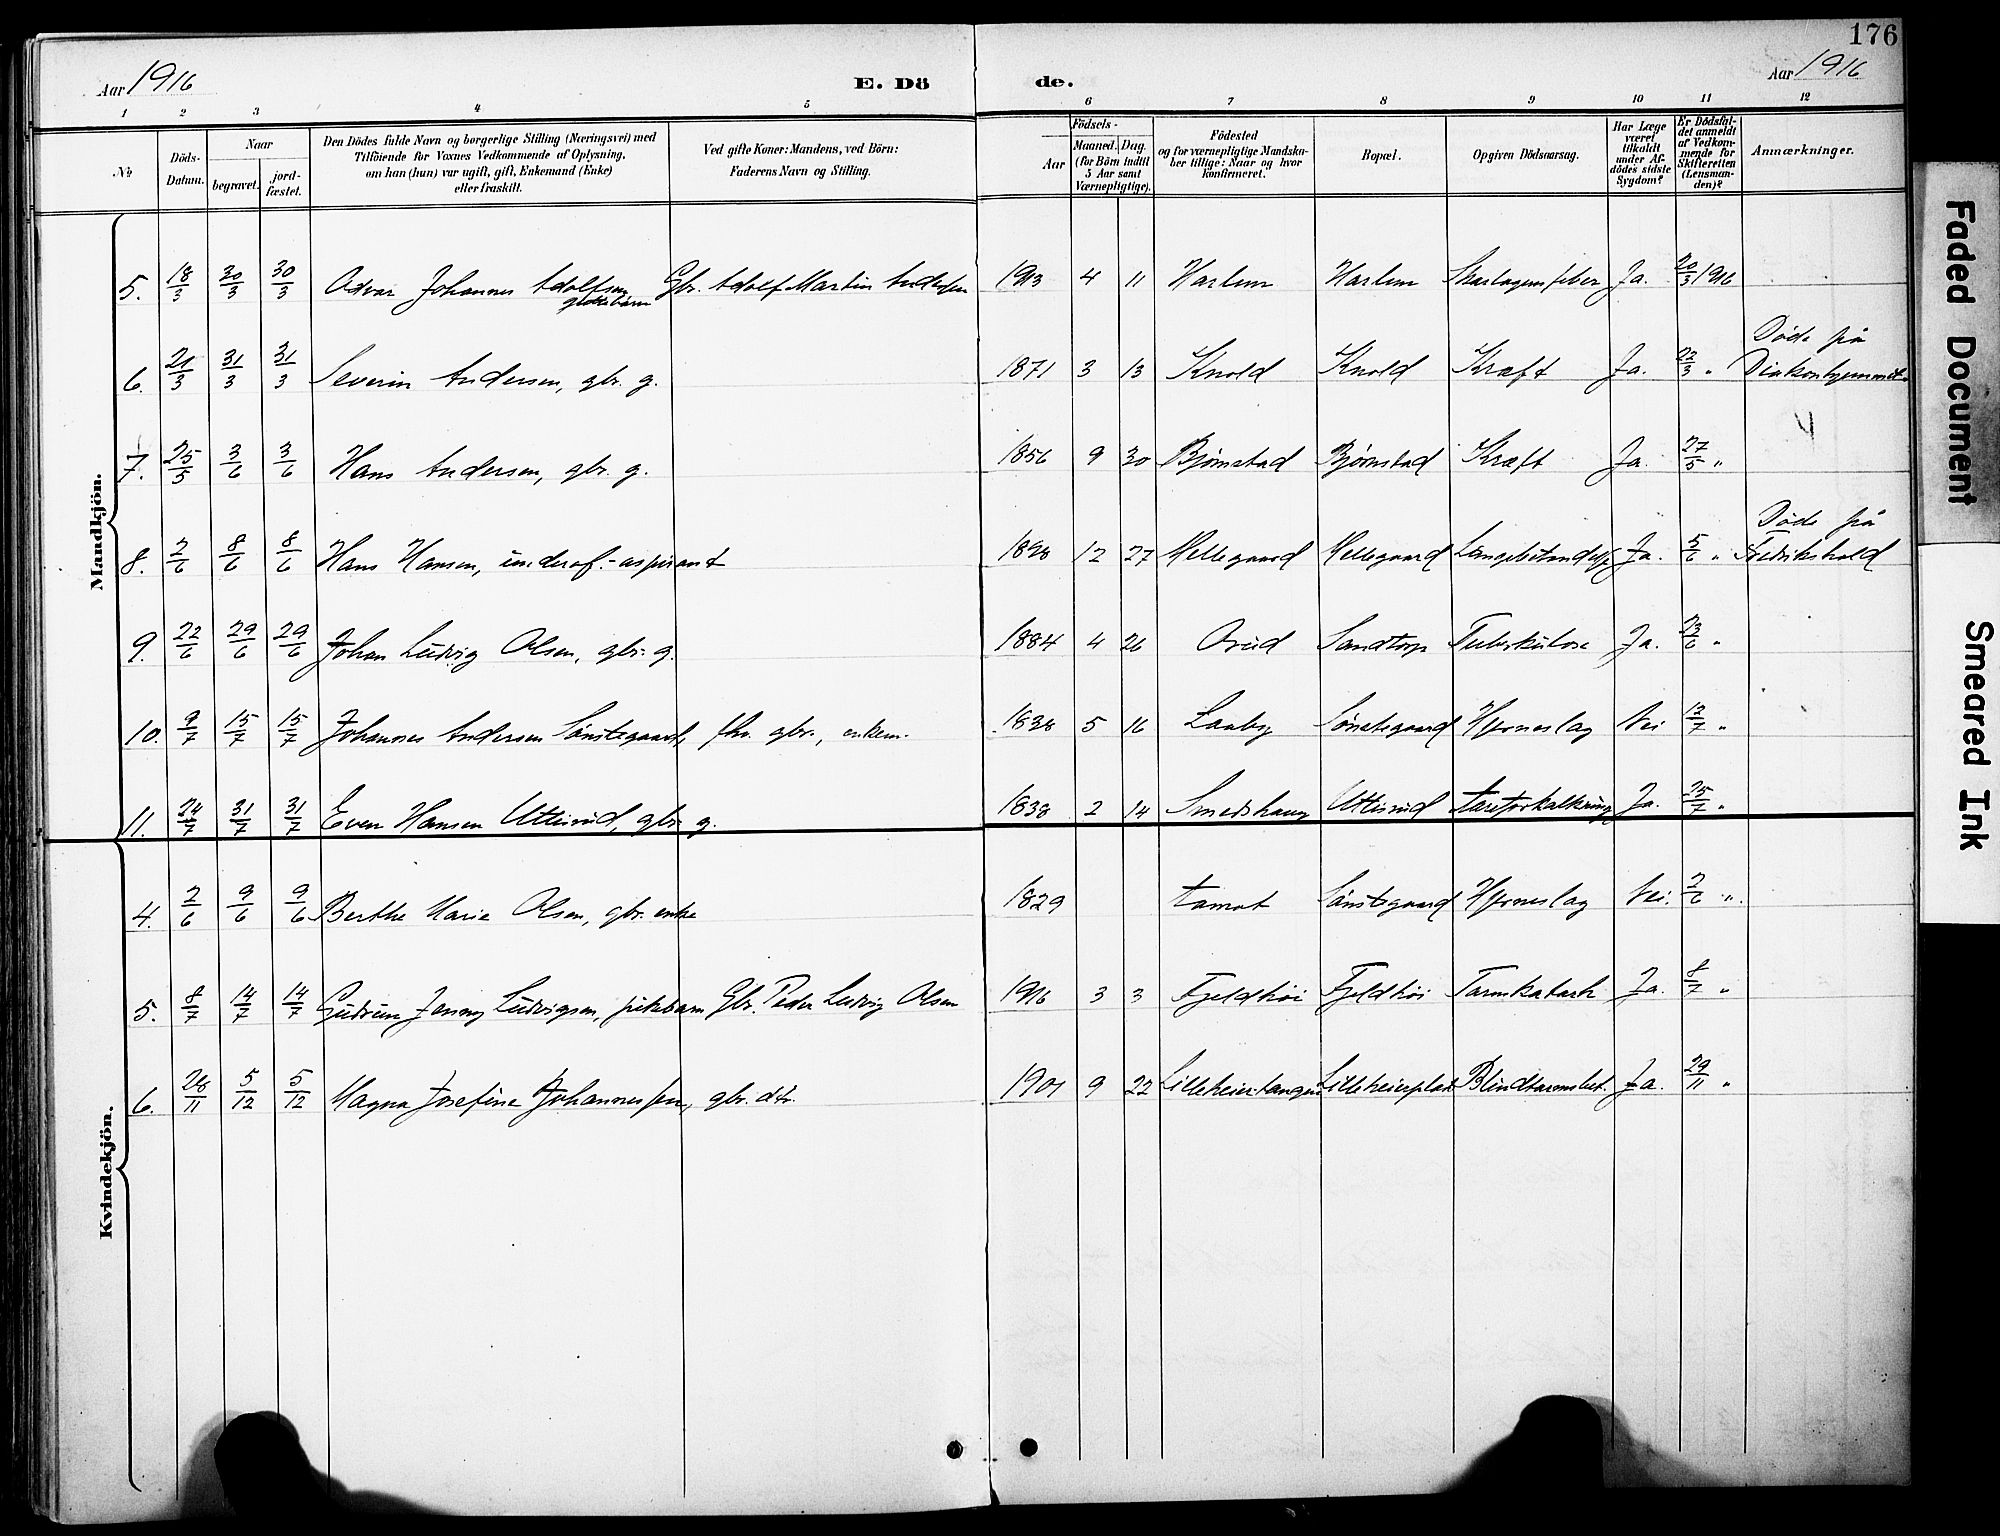 176
Aar 1916 E. Dö de. Aar 1916
1 2 3 4 5 6 7 8 9 10 11 12
No
Döds-Datum.
Naar
begravet.
jord-fæstet.
Den Dödes fulde Navn og borgerlige Stilling (Næringsvei) med
Tilföiende for Voxnes Vedkommende af Oplysning,
om han (hun) var ugift, gift, Enkemand (Enke)
eller fraskilt.
Ved gifte Koner: Mandens, ved Börn:
Faderens Navn og Stilling.
Födsels-
Aar
Maaned. Dag.
(for Börn indtil
5 Aar samt
Værnepligtige).
Födested
og for værnepligtige Mandska-
ber tillige: Naar og hvor
konfirmeret.
Bopæl.
Opgiven Dödsaarsag.
Har Læge
været
tilkaldt
under Af-
dödes sidste
Sygdom?
Er Dödsfal-
det anmeldt
af Vedkom-
mende for
Skifteretten
(Lensman-
den)?
Anmærkninger.
Mandkjön.
5. 18/3 30/3 30/3 Odvar Johannes Adolfsen Gbr. Adolf Martin 1913 4 11 Harlem Harlem Skarlagensfeber Ja. 20/3 1916
6. 21/3 31/3 31/3 Severin Andersen, gbr. g. 1871 3 13 Knold Knold Kræft Ja. 22/3 " Døde på
Diakonhjemmet
7. 25/5 3/6 3/6 Hans Andersen, gbr. g. 1856 9 30 Bjørnstad Bjørnstad Kræft Ja. 27/5 "
8. 2/6 8/6 8/6 Hans Hansen, underof.-aspirant 1898 12 27 Hellegaard Hellegaard Ja. 5/6 " Døde på
Fredrikshald
9. 22/6 29/6 29/6 Johan Ludvig Olsen, gbr. g. 1884 4 26 Sandtorp Tuberkulose Ja. 23/6 "
10. 9/7 15/7 15/7 Johannes Andersen Sønstegaard, fhv. gbr., enkem. 1838 5 16 Laaby Sønstegaard Hjerneslag Nei 12/7 "
11. 24/7 31/7 31/7 Even Hansen Uttisrud, gbr. g. 1838 2 14 Smedshaug Uttisrud Aareforkalkning Ja. 25/7 "
Kvindekjön.
4. 2/6 9/6 9/6 Berthe Marie Olsen, gbr. enke 1829 Sønstegaard Hjerneslag Nei. 2/6 "
5. 8/7 14/7 14/7 Gudrun Jenny Ludvigsen, pikebarn Gbr. Peder Ludvig Olsen 1916 3 3 Fjeldhøi Fjeldhøi Tarmkatarh Ja. 8/7 "
6. 28/11 5/12 5/12 Magna Josefine Johannessen, gbr. dtr. 1901 9 22 Blindtarmsbet. Ja. 29/11 "
Faded Document
Smeared Ink